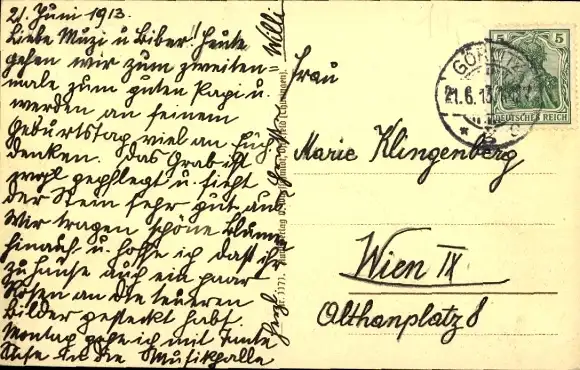 21. Juni 1913.
Liebe Muzi u Biber! Heute
gehen wir zum zweiten=
male zum guten Papi u.
werden an seinem
Geburtstag viel an Euch
denken. Das Grab ist
wohl gepflegt u. sieht
der Stein sehr gut aus
Wir tragen schöne Blumen
hinauf u. hoffe ich daß ihr
zu Hause auch ein paar
Rosen an die teueren
Bilder gesteckt habt.
Montag gehe ich mit Tante
in die Musikhalle
Willi
Frau
Marie Klingenberg
Wien IX
Althanplatz 8
GÖRLITZ
21.6.13
5
5
DEUTSCHES REICH